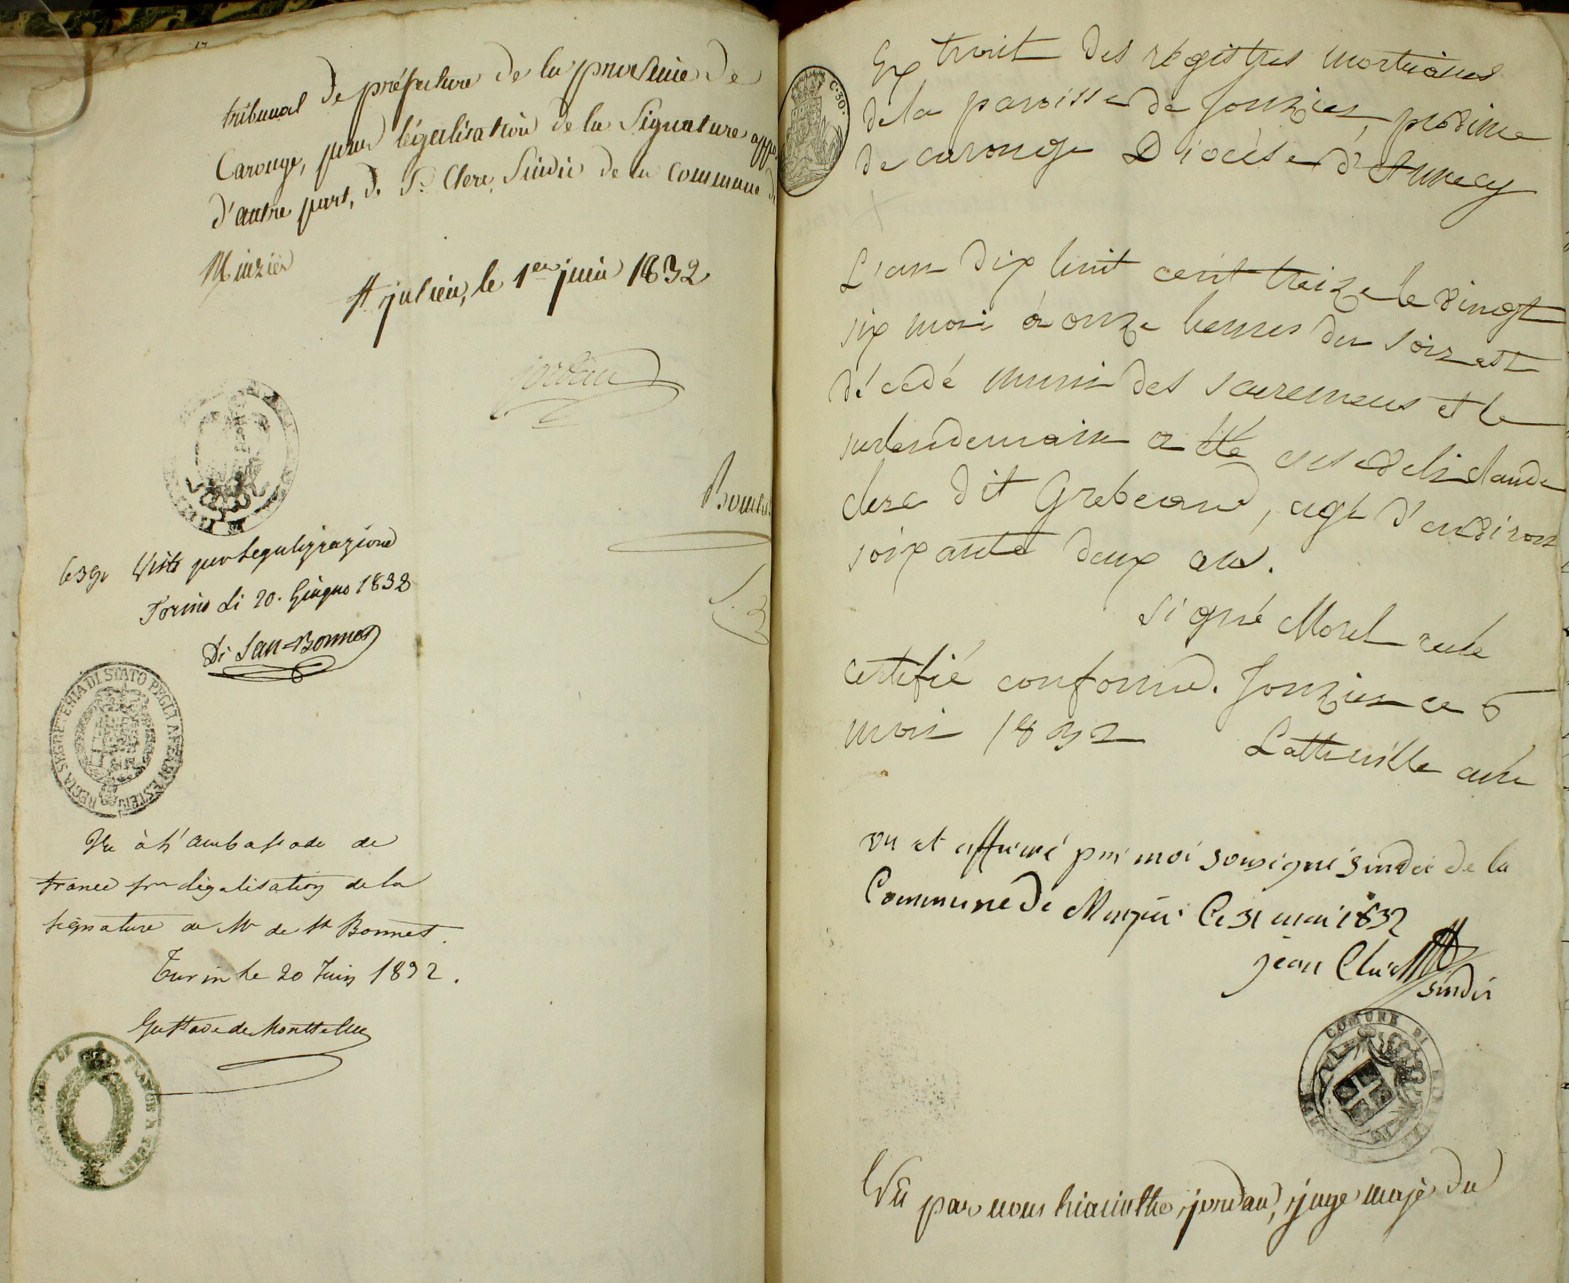 tribunal de préfecture de la province de
Carouge, pour légalisation de la Signature app
d'autre part, de Sr. Clerc, Sindic de la Commune de
Minzier
St julien, le 1er juin 1832
jordan
Visto per legalizzazione
Torino li 20. Giugno 1832
Di San=Bonnet
REGIA SEGRETERIA DI STATO PEGLI AFFARI ESTERI
Vu à l'ambassade de
france pr légalisation de la
signature de Mr de St Bonnet.
Turin le 20 Juin 1832.
Gustave de Montebello
DE FRANCE A TURIN
C. 30.
Extrait des régistres mortuaires
de la paroisse de Jonzier, province
de carouge Diocèse d'Annecy
L'an dix huit cent treize le vingt
six mai à onze heures du soir est
décédé muni des sacremens et le
surlendemain a été enseveli claude
clerc dit Grebeand, agé d'environ
soixante deux ans.
signé Morel recte
certifié conforme. Jonzier ce 6
mai 1832 curé
vu et affirmé par moi sousigné sindic de la
Commune de Minzier Ce 31 mai 1832
jean Clerc
sindic
COMUNE DI
Vu par nous hiacinthe jordan, juge maje du